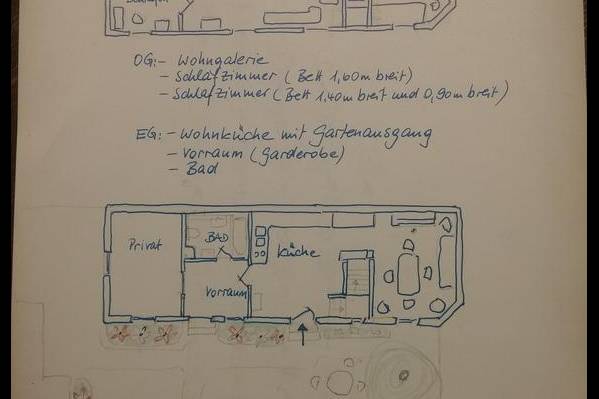 OG:- Wohngalerie
- Schlafzimmer (Bett 1,60m breit)
- Schlafzimmer (Bett 1,40m breit und 0,90m breit)
EG: - Wohnküche mit Gartenausgang
- Vorraum (Garderobe)
- Bad
Privat
BAD
Küche
Vorraum